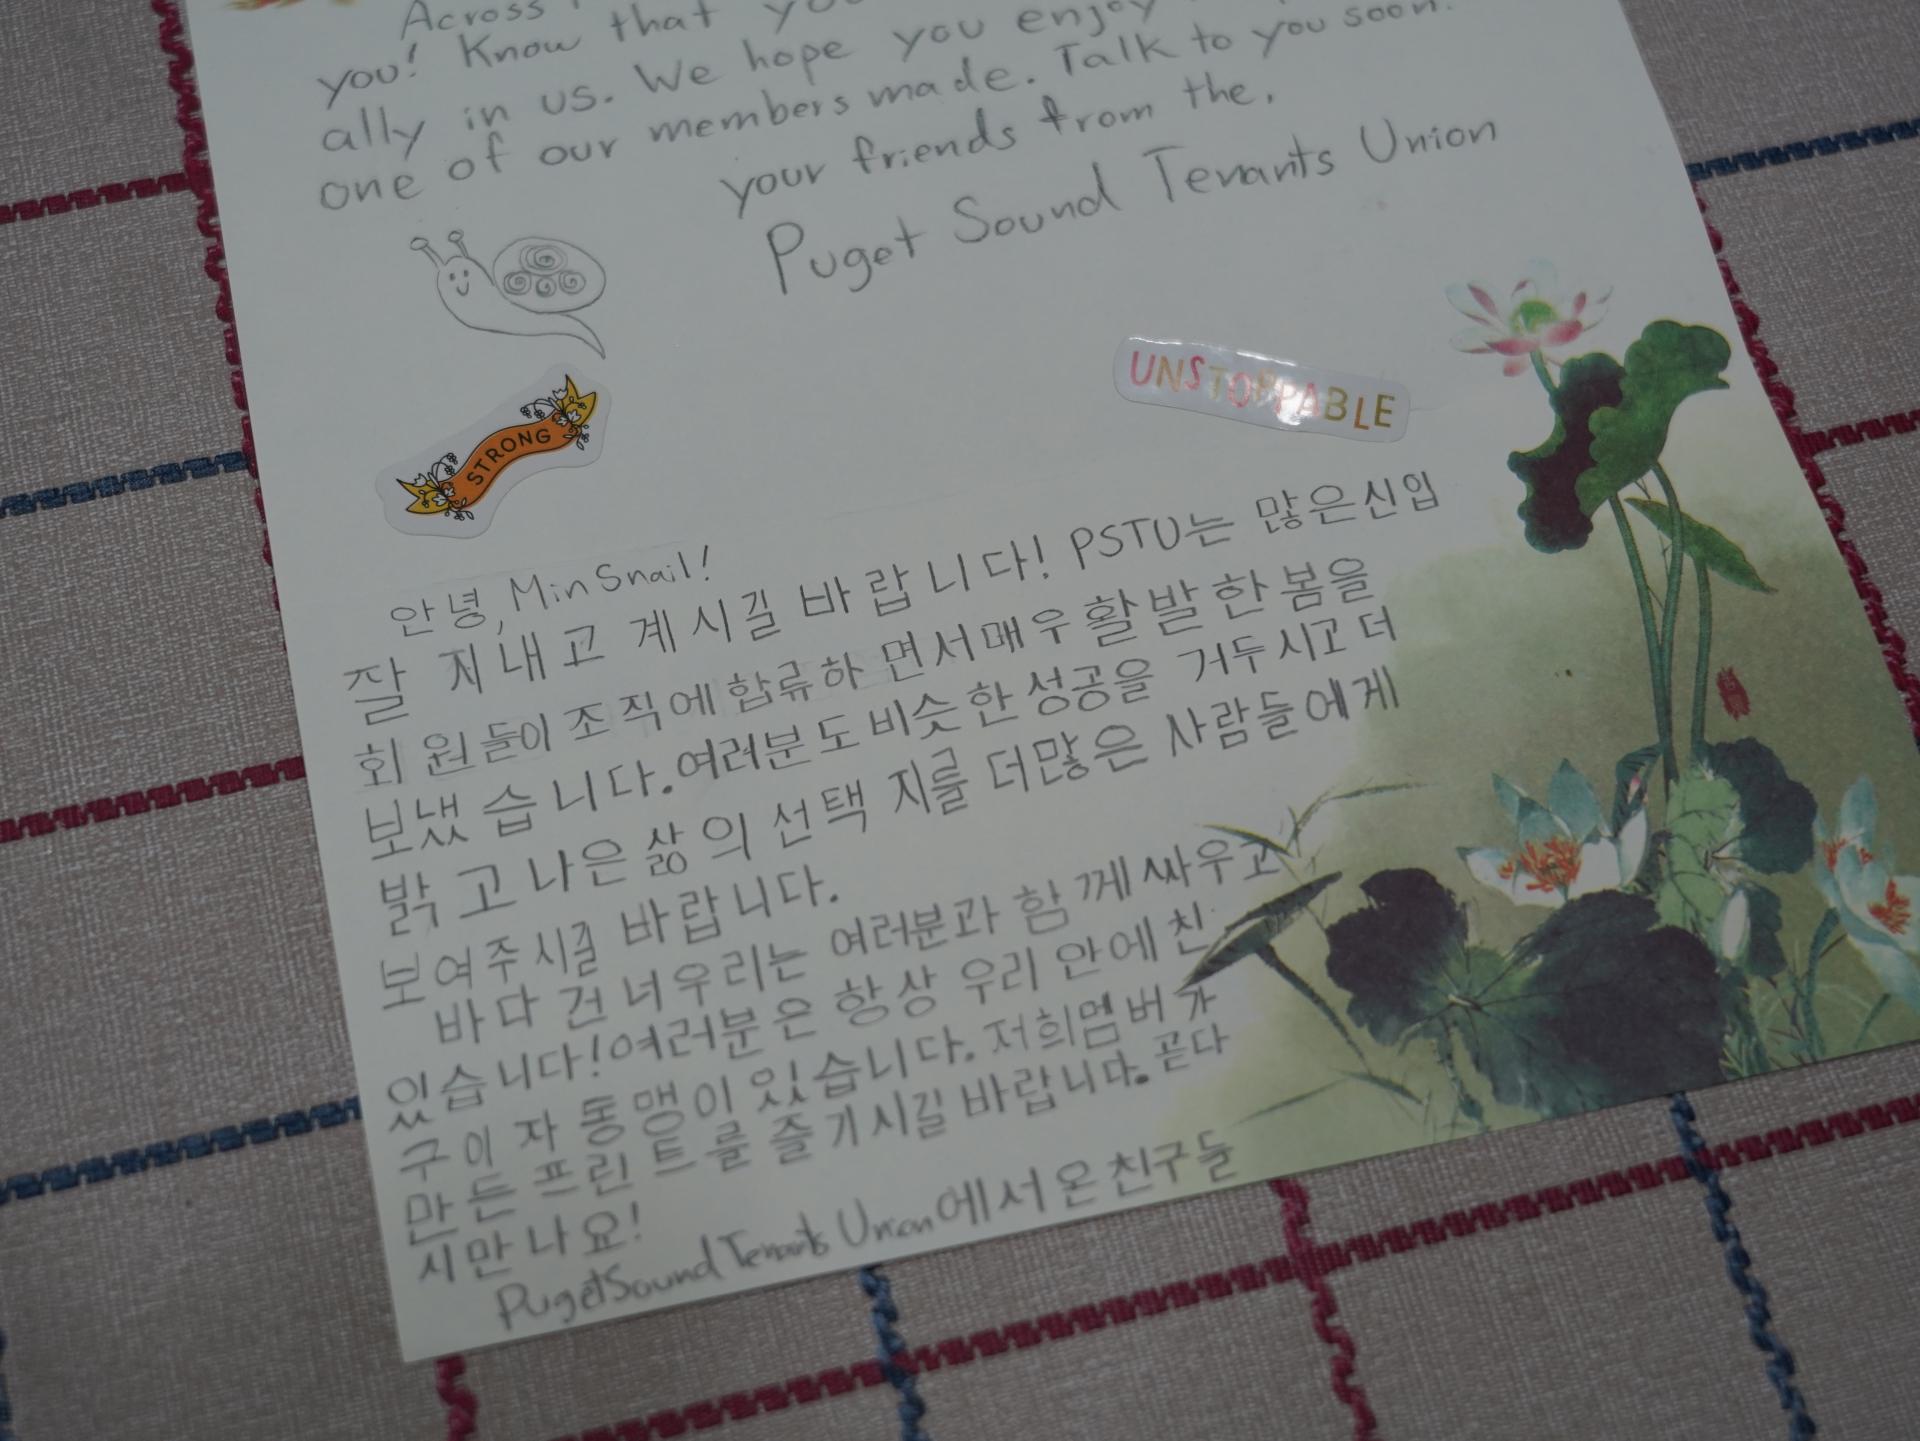 Across
you! Know that
ally in us. We hope you enjoy
one of our members made. Talk to you soon.
your friends from the,
Puget Sound Tenants Union
STRONG
UNSTOPPABLE
안녕, MinSnail!
잘 지내고 계시길 바랍니다! PSTU는 많은신입
회원들이 조직에 합류하면서매우활발한 봄을
보냈습니다. 여러분도비슷한성공을 거두시고더
밝고 나은 삶의 선택지를 더많은 사람들에게
보여주시길 바랍니다.
바다 건너우리는 여러분과 함께싸우고
있습니다! 여러분은 항상 우리 안에 친
구이자 동맹이 있습니다. 저희멤버가
만든 프린트를 즐기시길 바랍니다. 곧다
시만나요!
PugetSound Tenants Union에서온친구들